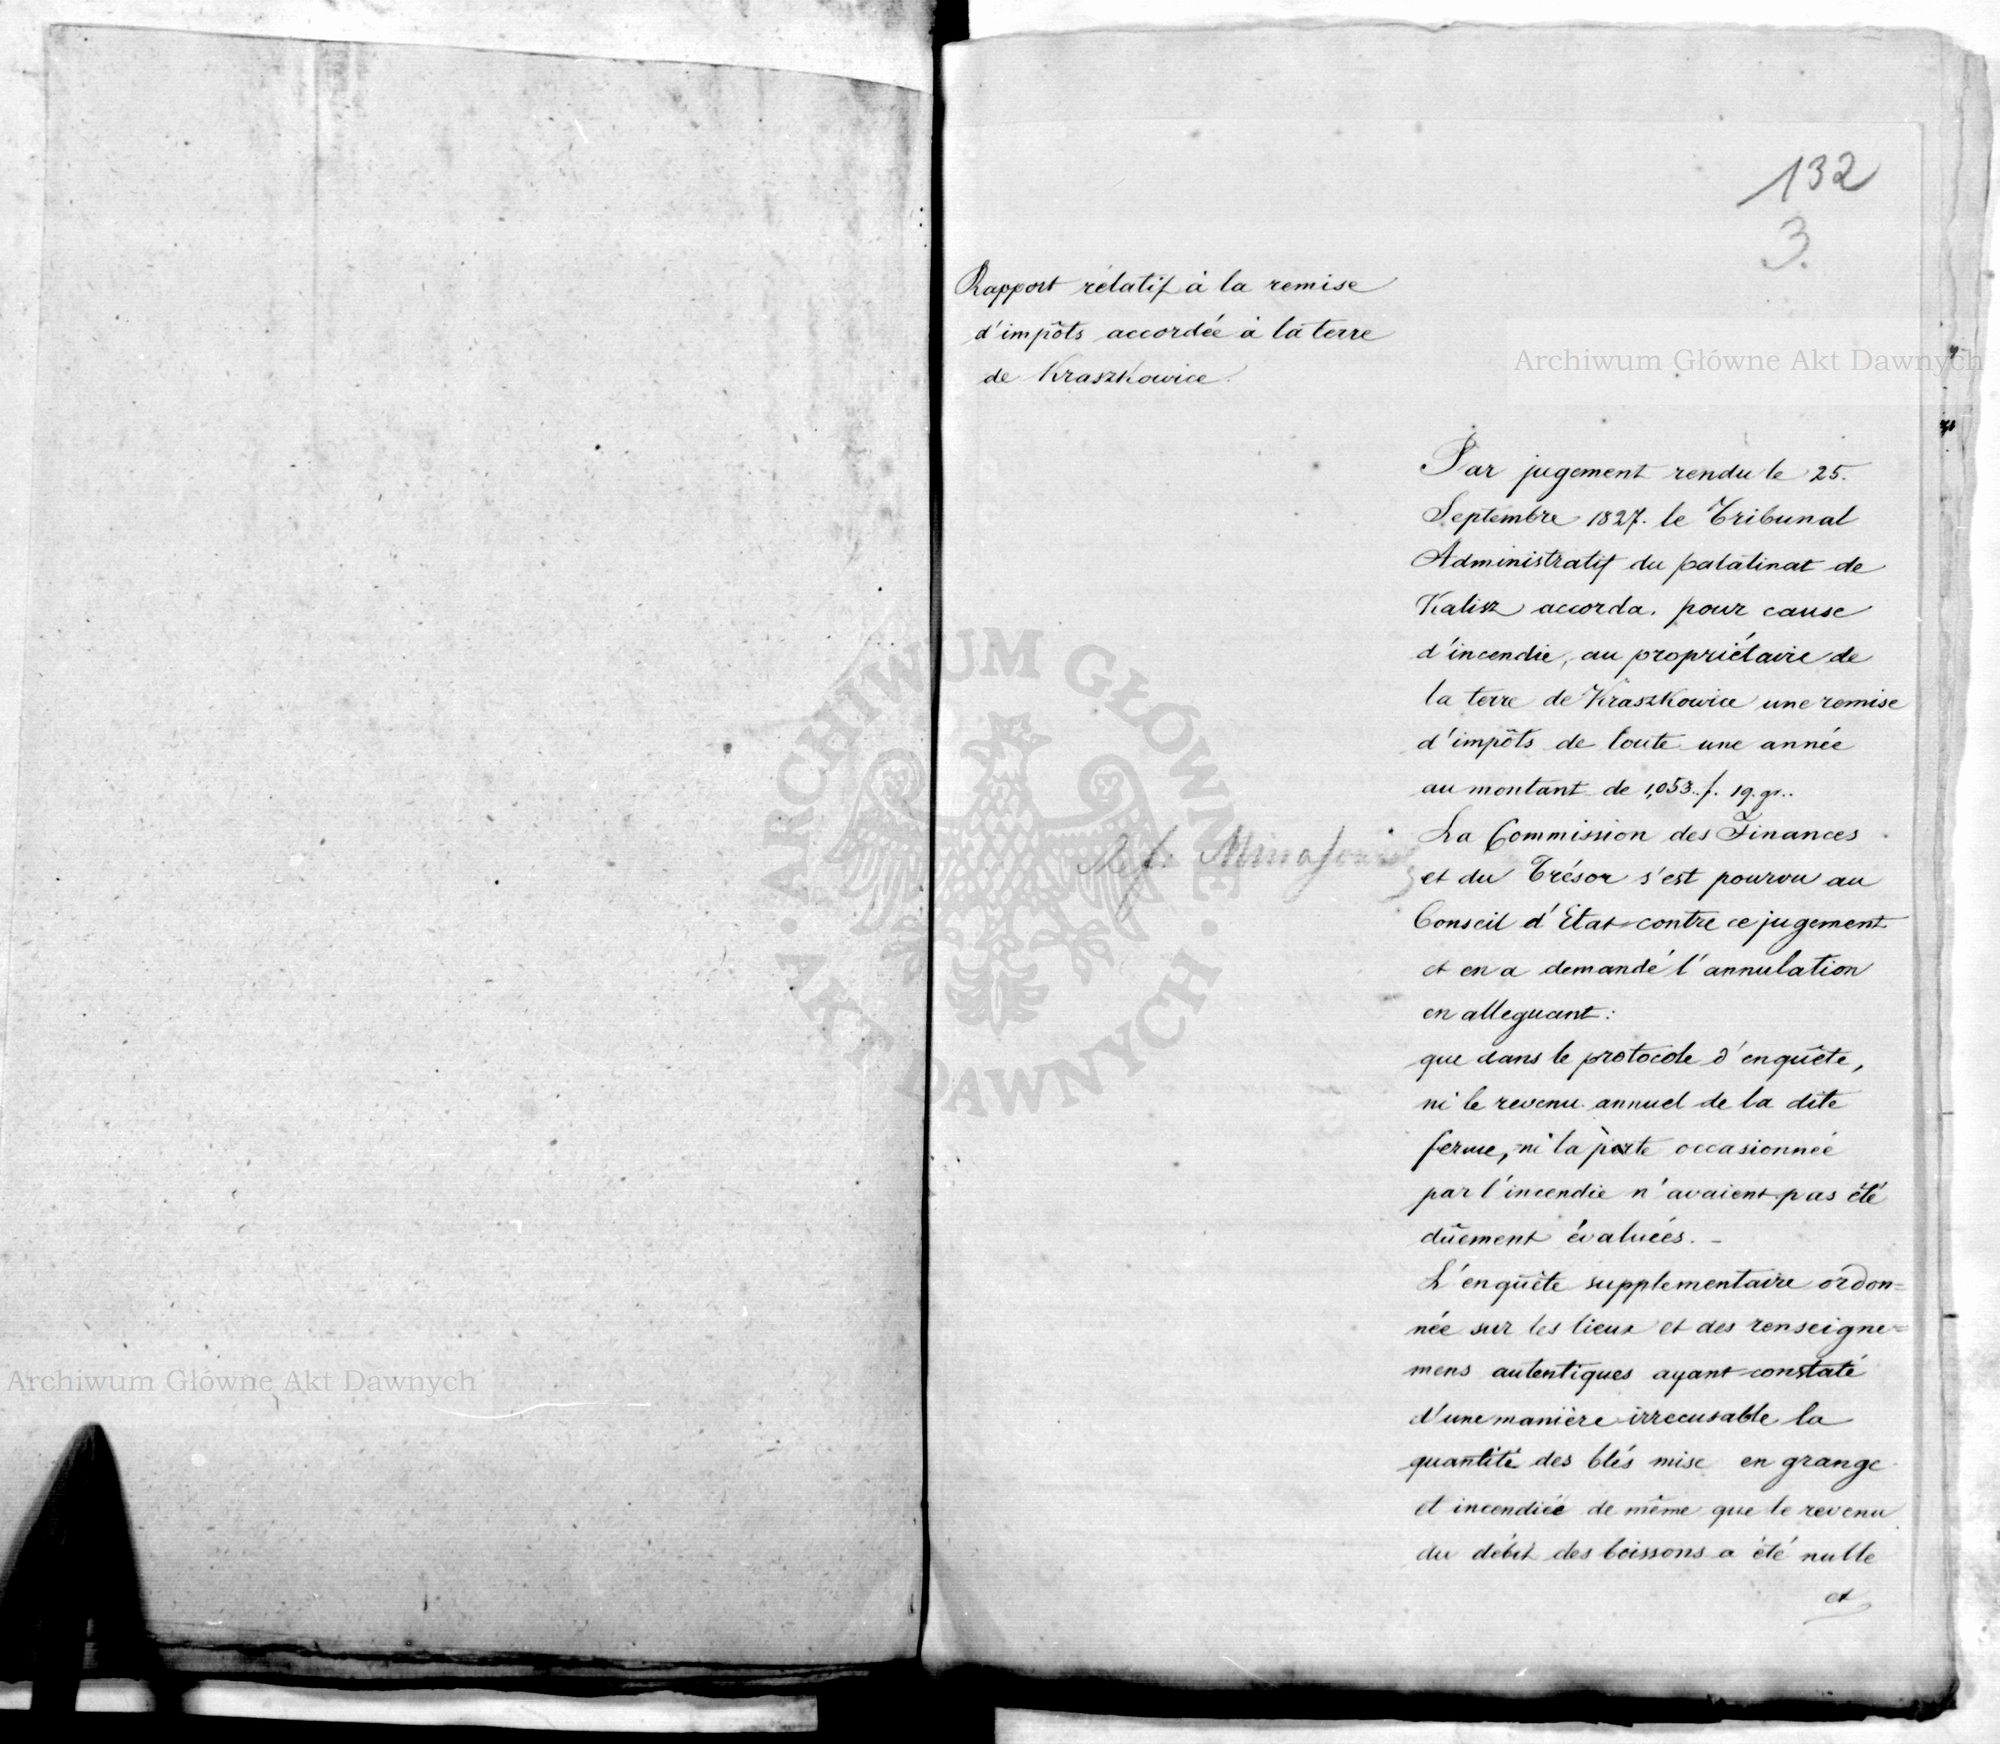 132
3.
Rapport rélatif à la remise
d'impôts accordée à la terre
de Kraszkowice.
Archiwum Główne Akt Dawnych
Par jugement rendu le 25.
Septembre 1827. le Tribunal
Administratif du palatinat de
Kalisz accorda, pour cause
d'incendie, au propriétaire de
la terre de Kraszkowice une remise
d'impôts de toute une année
au montant de 1,053.. f. 19. gr..
La Commission des Finances
et du Trésor s'est pourvu au
Conseil d'Etat contre ce jugement
et en a demandé l'annulation
en alleguant:
que dans le protocole d'enquête,
ni le revenu annuel de la dite
ferme, ni la perte occasionnée
par l'incendie n'avaient pas été
dûement évaluées. –
L'enquête supplementaire ordon=
née sur les lieux et des renseigne=
mens autentiques ayant constaté
d'une manière irrecusable la
quantité des blés mise en grange
et incendiée de même que le revenu
du débit des boissons a été nulle
et
Ref.
ARCHIWUM GŁÓWNE · AKT DAWNYCH ·
Archiwum Główne Akt Dawnych